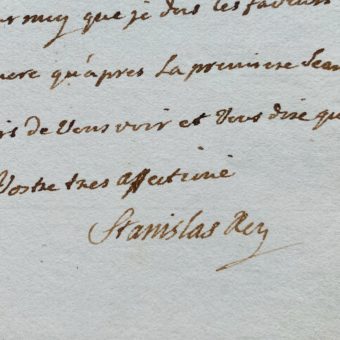 que je dois les faveurs
qu'apres La premiere
de Vous voir et Vous dire que
Vostre tres affectioné
Stanislas Roy